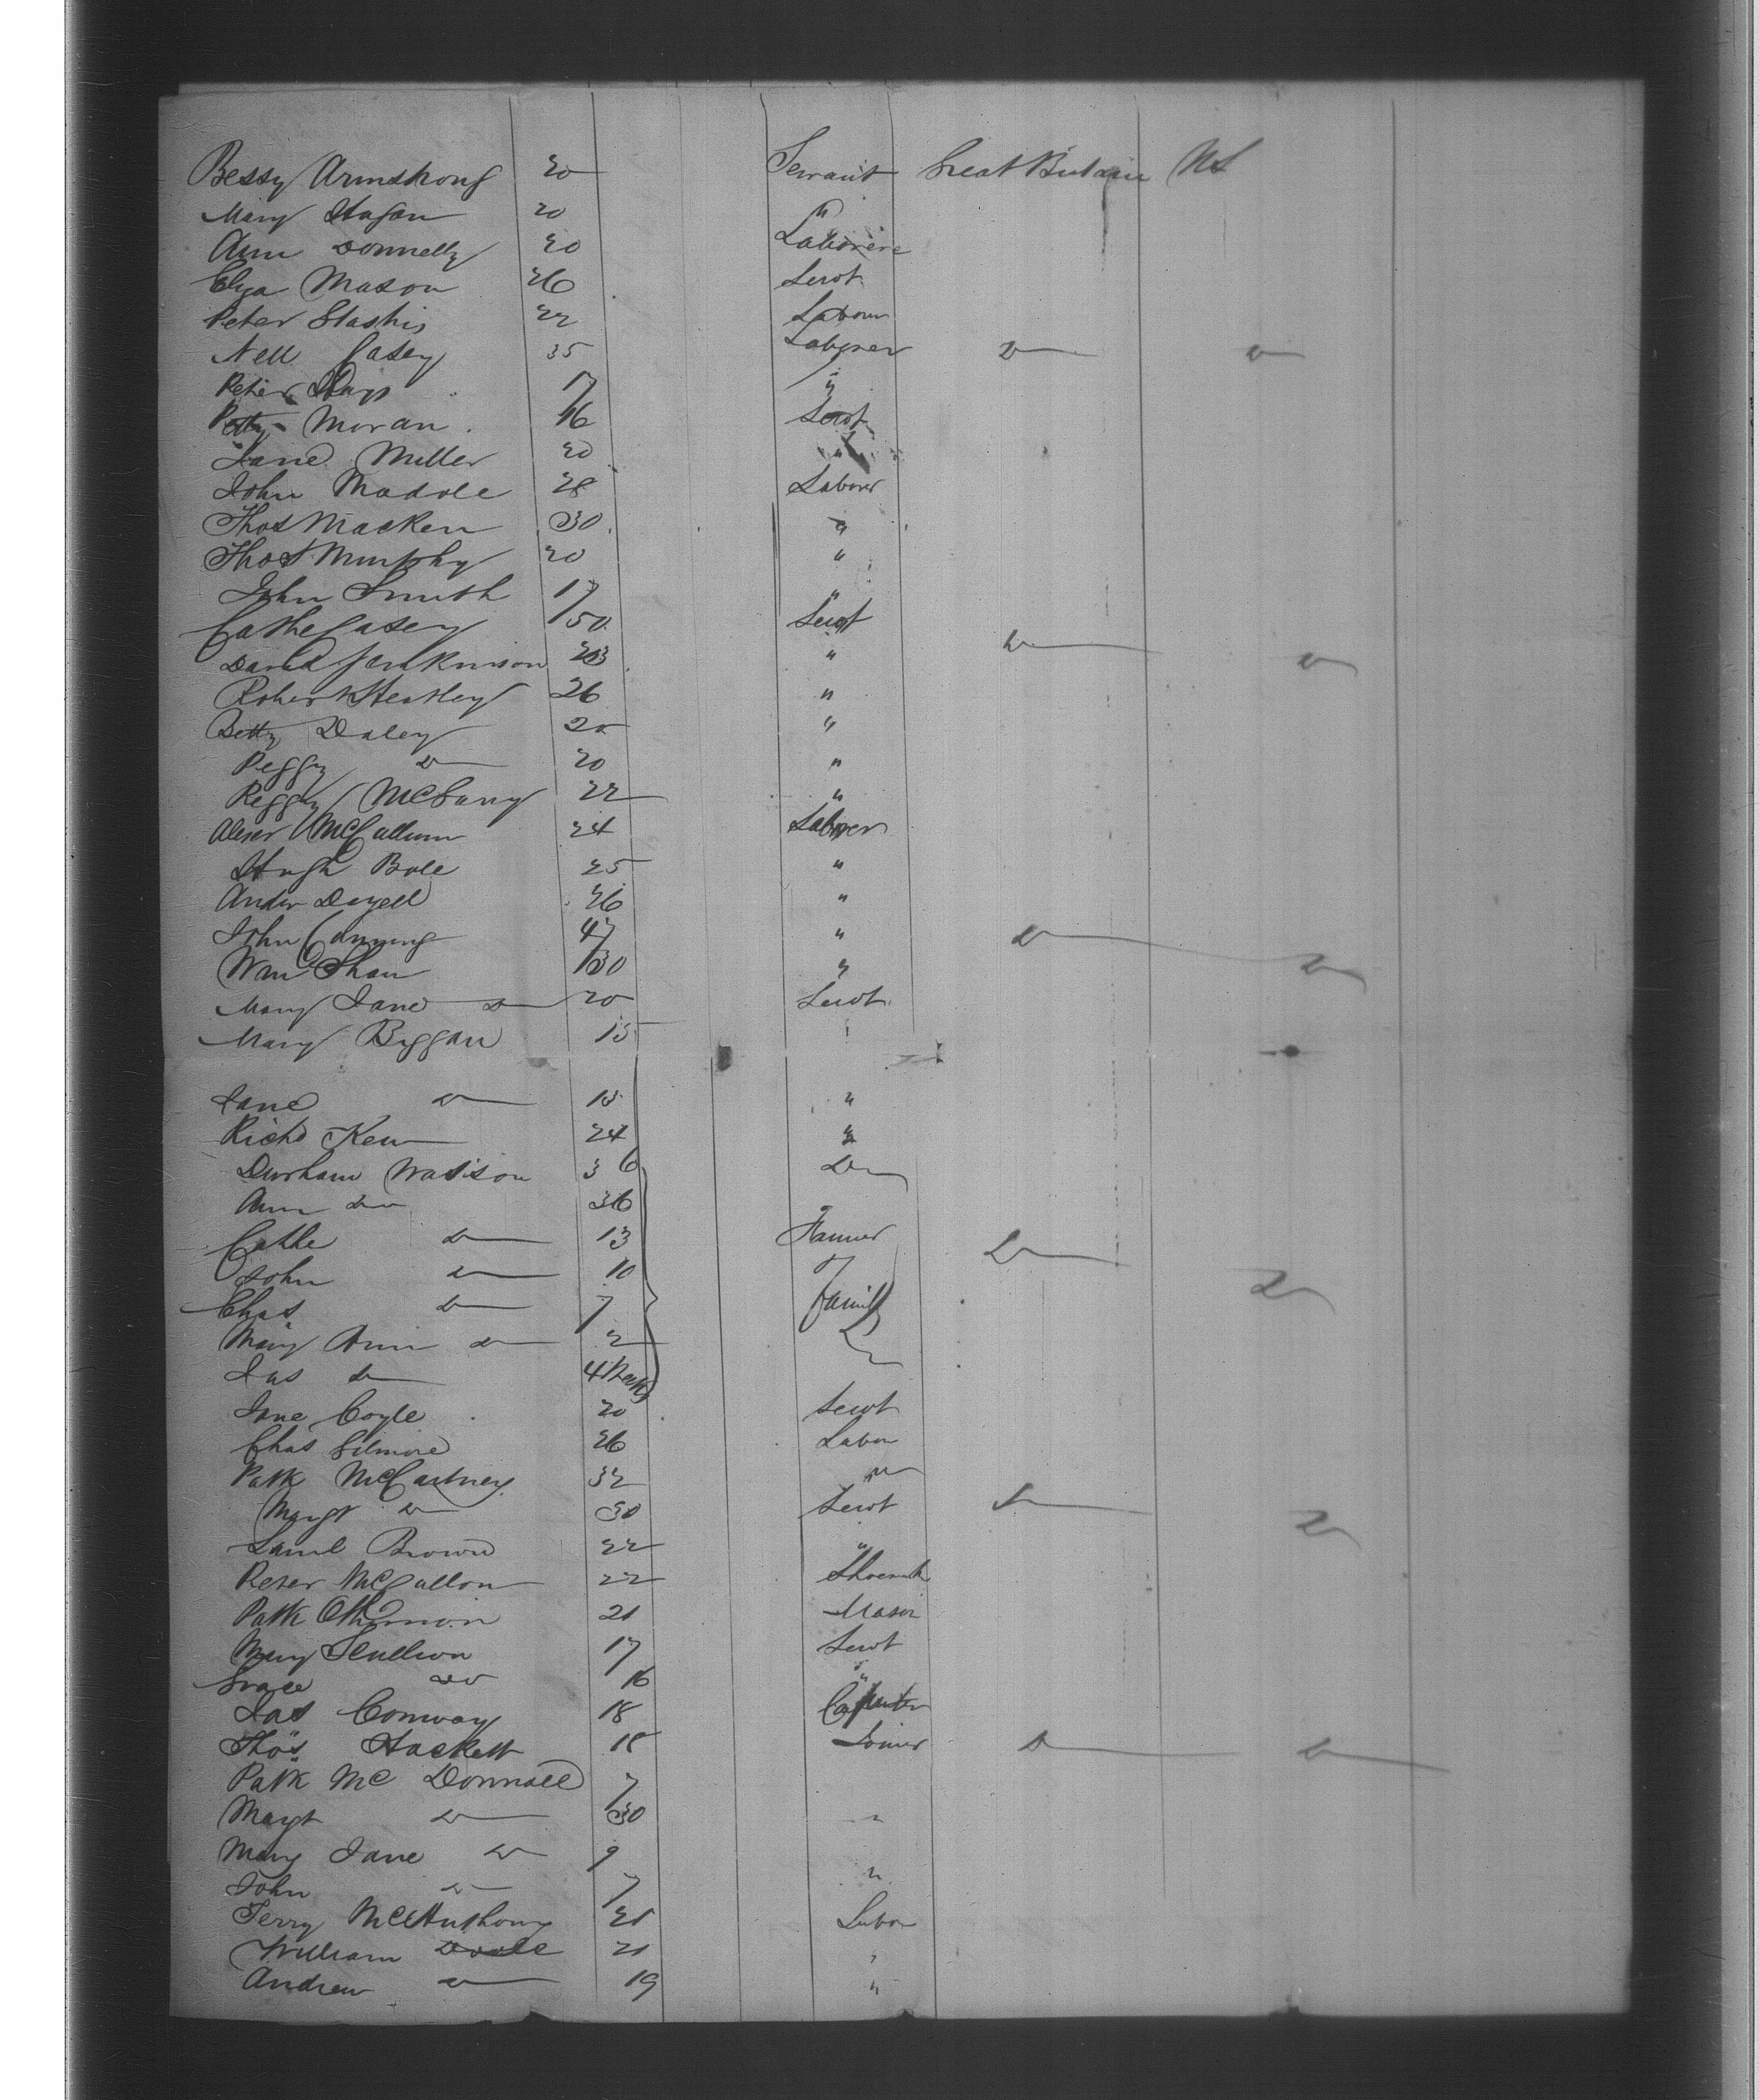 Bessy Armstrong 20 Servant Great Britain US
Mary Hagan 20 "
Ann Donnelly 20 Laborer
Elza Mason 26 Servt
Peter 22 Labour
Nell Casey 35 Laborer Do Do
Peter Hays 17 "
Patty Moran 16 Servt
Jane Miller 20 "
John Madole 28 Laborer
Thos Macken 30 "
Thos Murphy 20 "
John Smith 17 "
Cathe Casey 50 Servt Do
David Jenkinson 23 " Do
Robert Heatley 26 "
Betty Daley 20 "
Peggy Do 20 "
Peggy 22 "
Alexr McCallum 24 Laborer
Hugh Bole 25 "
Andw Dazell 26 "
John Canning 47 " Do
Wm Shaw 30 " Do
Mary Jane Do 20 Servt
Mary Biggan 15 "
Jane Do 13 "
Richd Kew 24 "
Durham Watison 36 Do
Ann Do 36
Cathe Do 13 Farmer Do
John Do 10 & Do
Chas Do 7 Family
Mary Ann Do 2
Jas Do 4 Weeks
Jane Coyle 20 Servt
Chas Gilmore 26 Labor
Patk McCartney 32 "
Margt Do 30 Servt Do Do
Saml Brown 22 "
Peter McCallon 22 Shoemk
Patk 21 Mason
Mary Scullion 17 Servt
Grace Do 16 "
Jas Conway 18 Carpenter
Thos Hackett 18 Joiner Do Do
Patk Mc Donnall 7
Margt Do 30 "
Mary Jane Do 9
John Do 7 "
Terry McAnthony 21 Labor
William Doole 21 "
Andrew Do 19 "